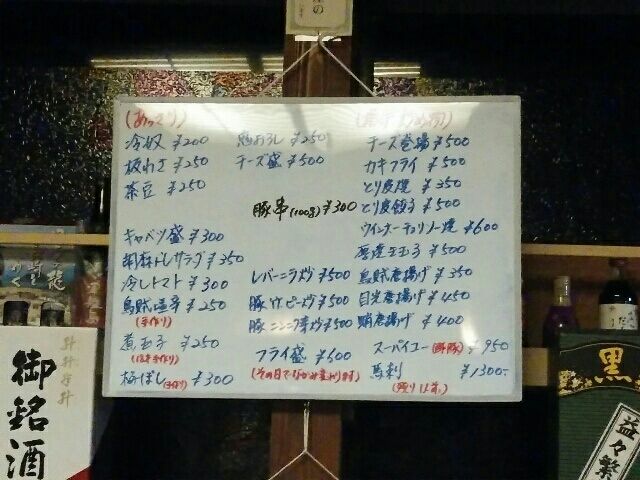 (あっさり)
冷奴 ¥200
板わさ ¥250
茶豆 ¥250
キャベツ盛 ¥300
胡麻ドレサラダ ¥350
冷しトマト ¥300
烏賊塩辛 ¥250
(手作り)
煮玉子 ¥250
梅ぼし ¥300
おろし ¥250
チーズ盛 ¥500
豚串(100g) ¥300
レバーニラ炒 ¥500
豚竹ピー炒 ¥500
豚ニンニク芽炒 ¥500
フライ盛 ¥600
(その日でなかみ変わります)
チーズ ¥500
カキフライ ¥500
とり皮焼 ¥350
とり皮餃子 ¥500
ウインナーチョリソー焼 ¥600
玉子 ¥500
烏賊唐揚げ ¥350
目光唐揚げ ¥450
蛸唐揚げ ¥400
スーパイコー(酢豚) ¥950
馬刺 ¥1300-
御銘酒
黒
益々繁